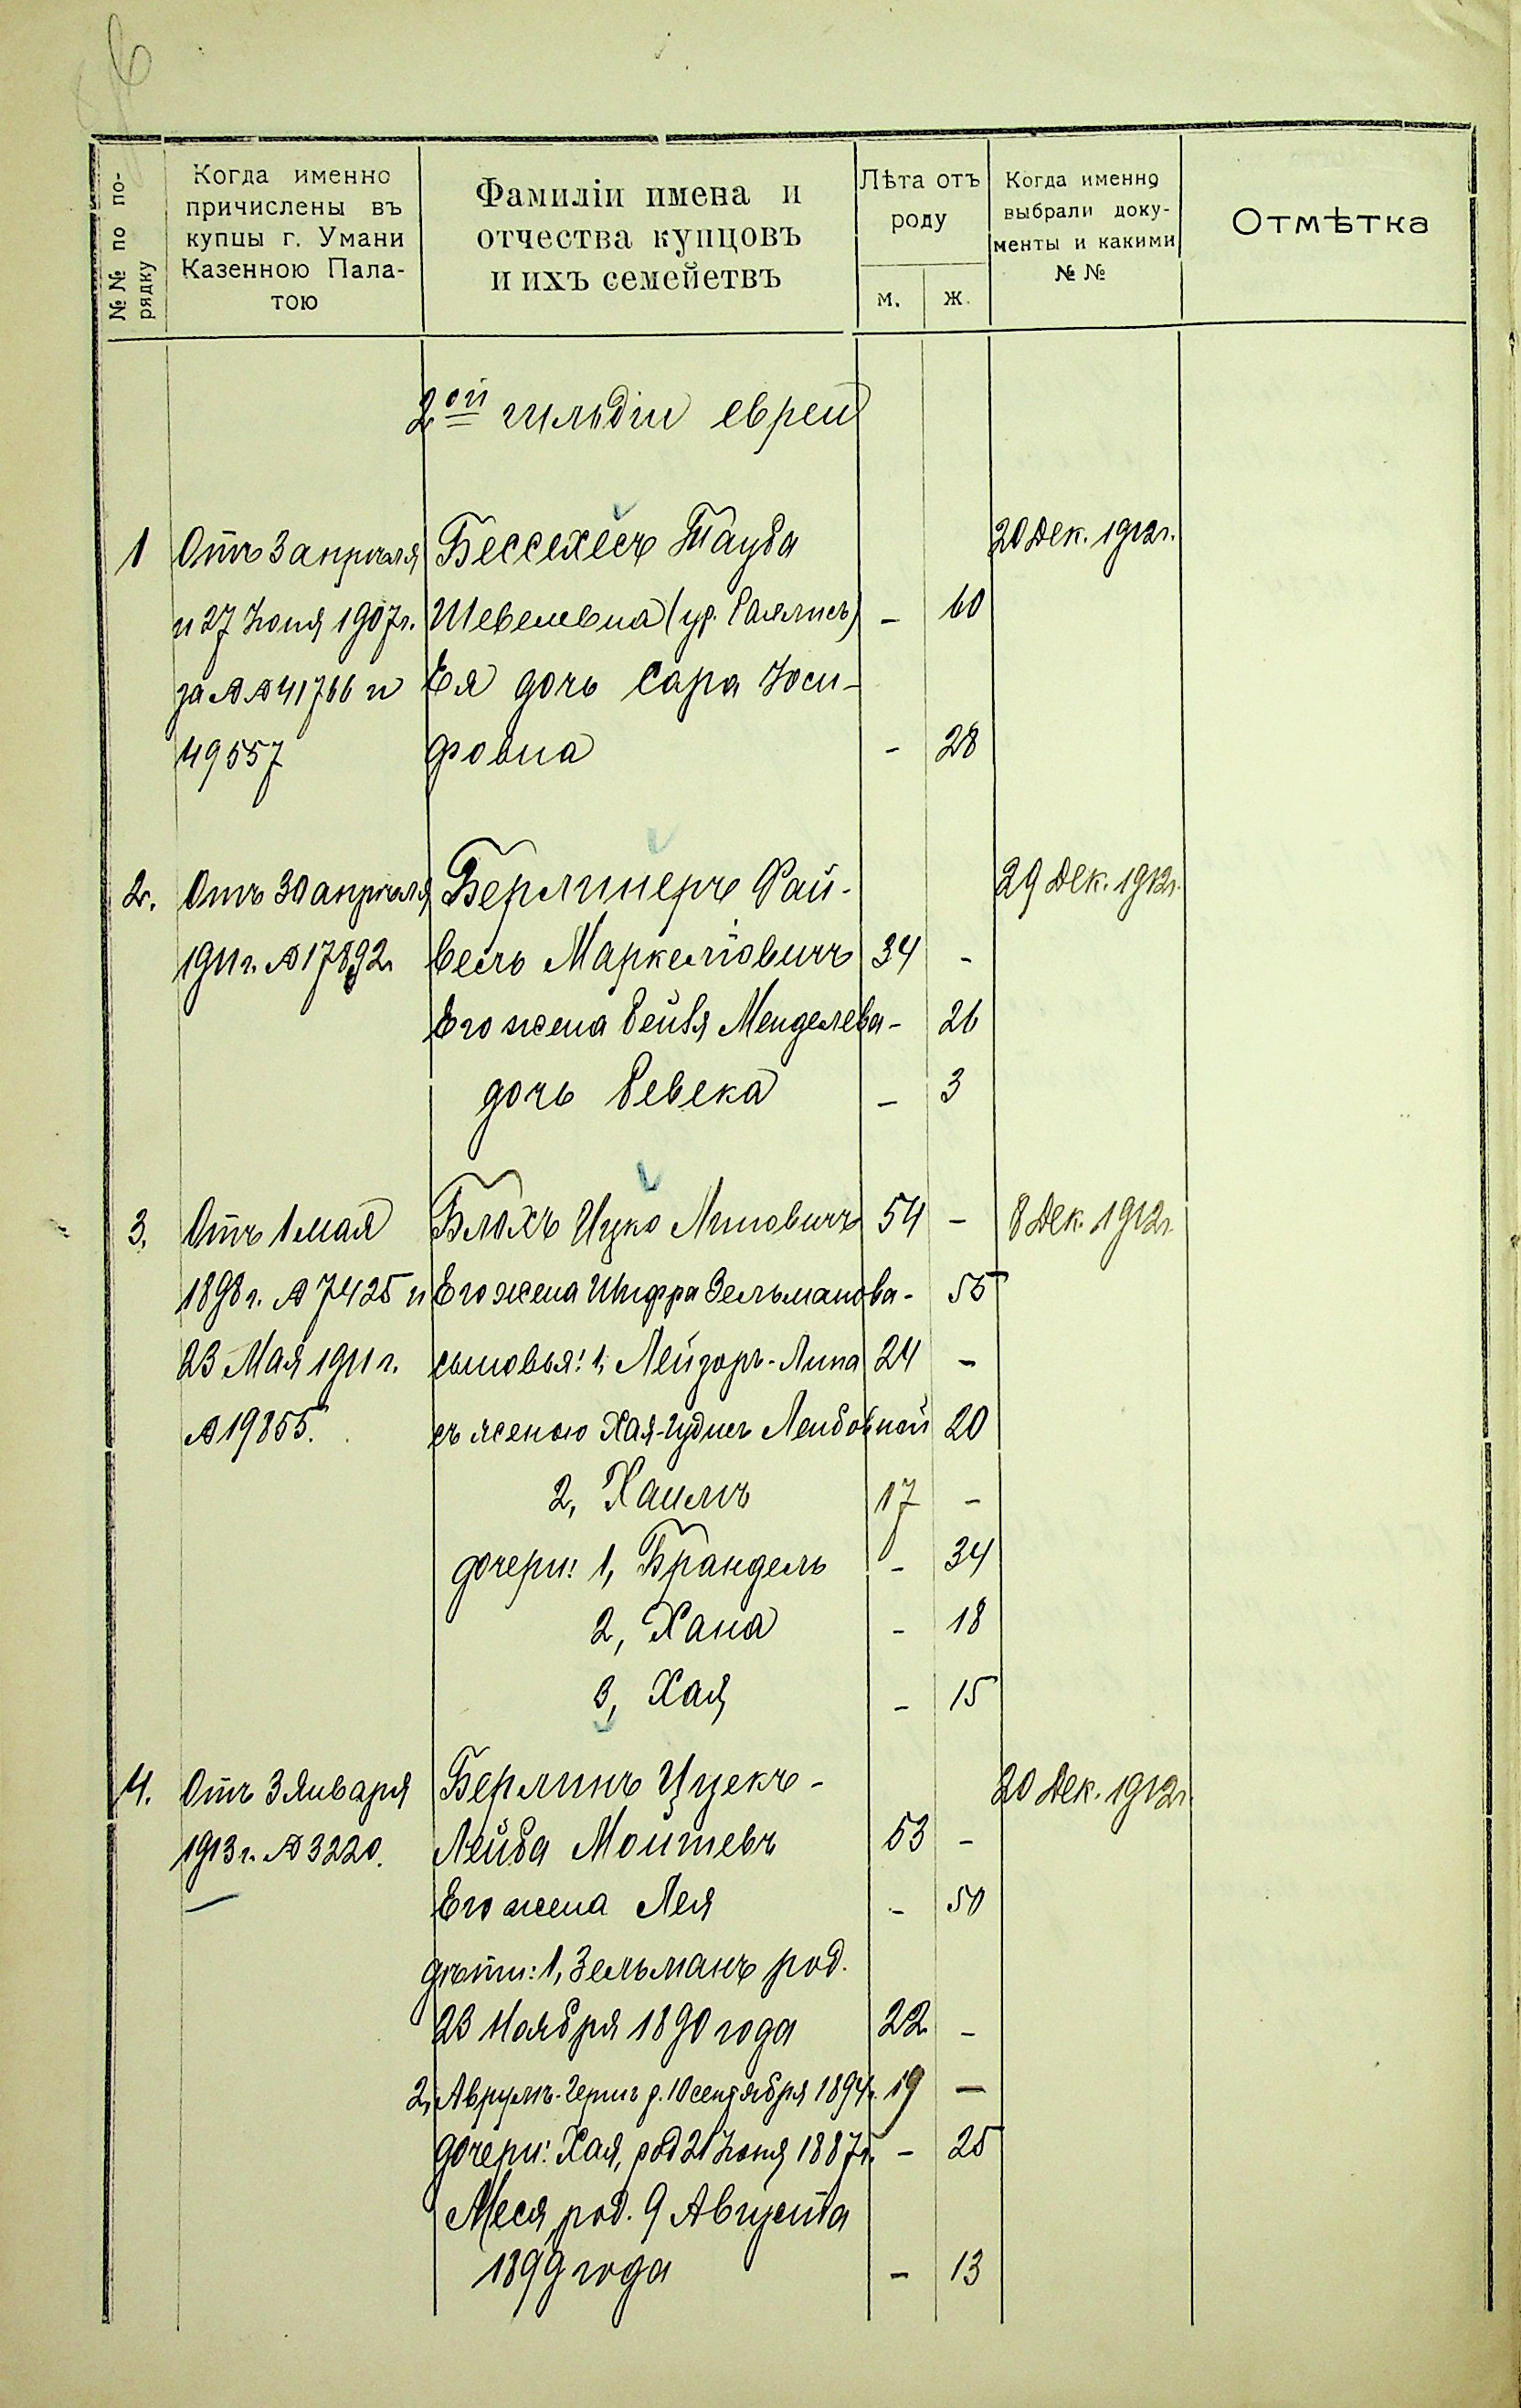 №№ по по-
рядку
Когда именно
причислены въ
купцы г. Умани
Казенною Пала-
тою
Фамиліи имена и
отчества купцовъ
и ихъ семействъ
Лѣта отъ
роду
м. ж.
Когда именно
выбрали доку-
менты и какими
№ №
Отмѣтка
2ой гильдіи евреи
1 Отъ 3 апрѣля Бессехесъ Тауба 20 Дек. 1912 г.
и 27 Іюня 1907 г. Шевелевна (ур. ) - 60
за №№ 41766 и Ея дочь Сара Іоси-
49557 фовна - 28
2. Отъ 30 апрѣля Берлинеръ Фай- 29 Дек. 1912 г.
1911 г. № 17892. вель Маркелiовичъ 34 -
Его жена Рейзя Менделева - 26
дочь Ревека - 3
3. Отъ 1 мая Блохъ Ицко Липовичъ 54 - 8 Дек. 1912 г.
1898 г. № 7425 и Его жена Шифра Зельманова - 55
23 Мая 1911 г. сыновья: 1, Лейзоръ-Липа 24 -
№ 19855. съ женою Хая-Гудисъ Лейбовной 20
2, Хаимъ 17 -
дочери: 1, Брандель - 34
2, Хана - 18
3, Хая - 15
4. Отъ 3 Января Берлинъ Ицекъ- 20 Дек. 1912 г.
1913 г. № 3220. Лейба Мошевъ 53 -
Его жена Лея - 50
дѣти: 1, Зельманъ род.
23 Ноября 1890 года 22 -
2, Аврумъ-Гершъ р. 10 сентября 1894 г. 19 -
дочери: Хая, род 21 Іюня 1887 г. - 25
Меся, род. 9 Августа
1899 года - 13